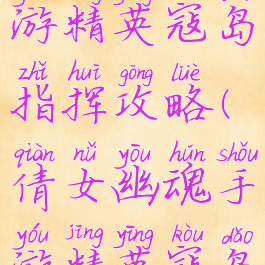 游精英寇岛
zhǐ huī gōng lüè
指挥攻略(
qiàn nǚ yōu hún shǒu
倩女幽魂手
yóu jīng yīng kòu dǎo
游精英寇岛